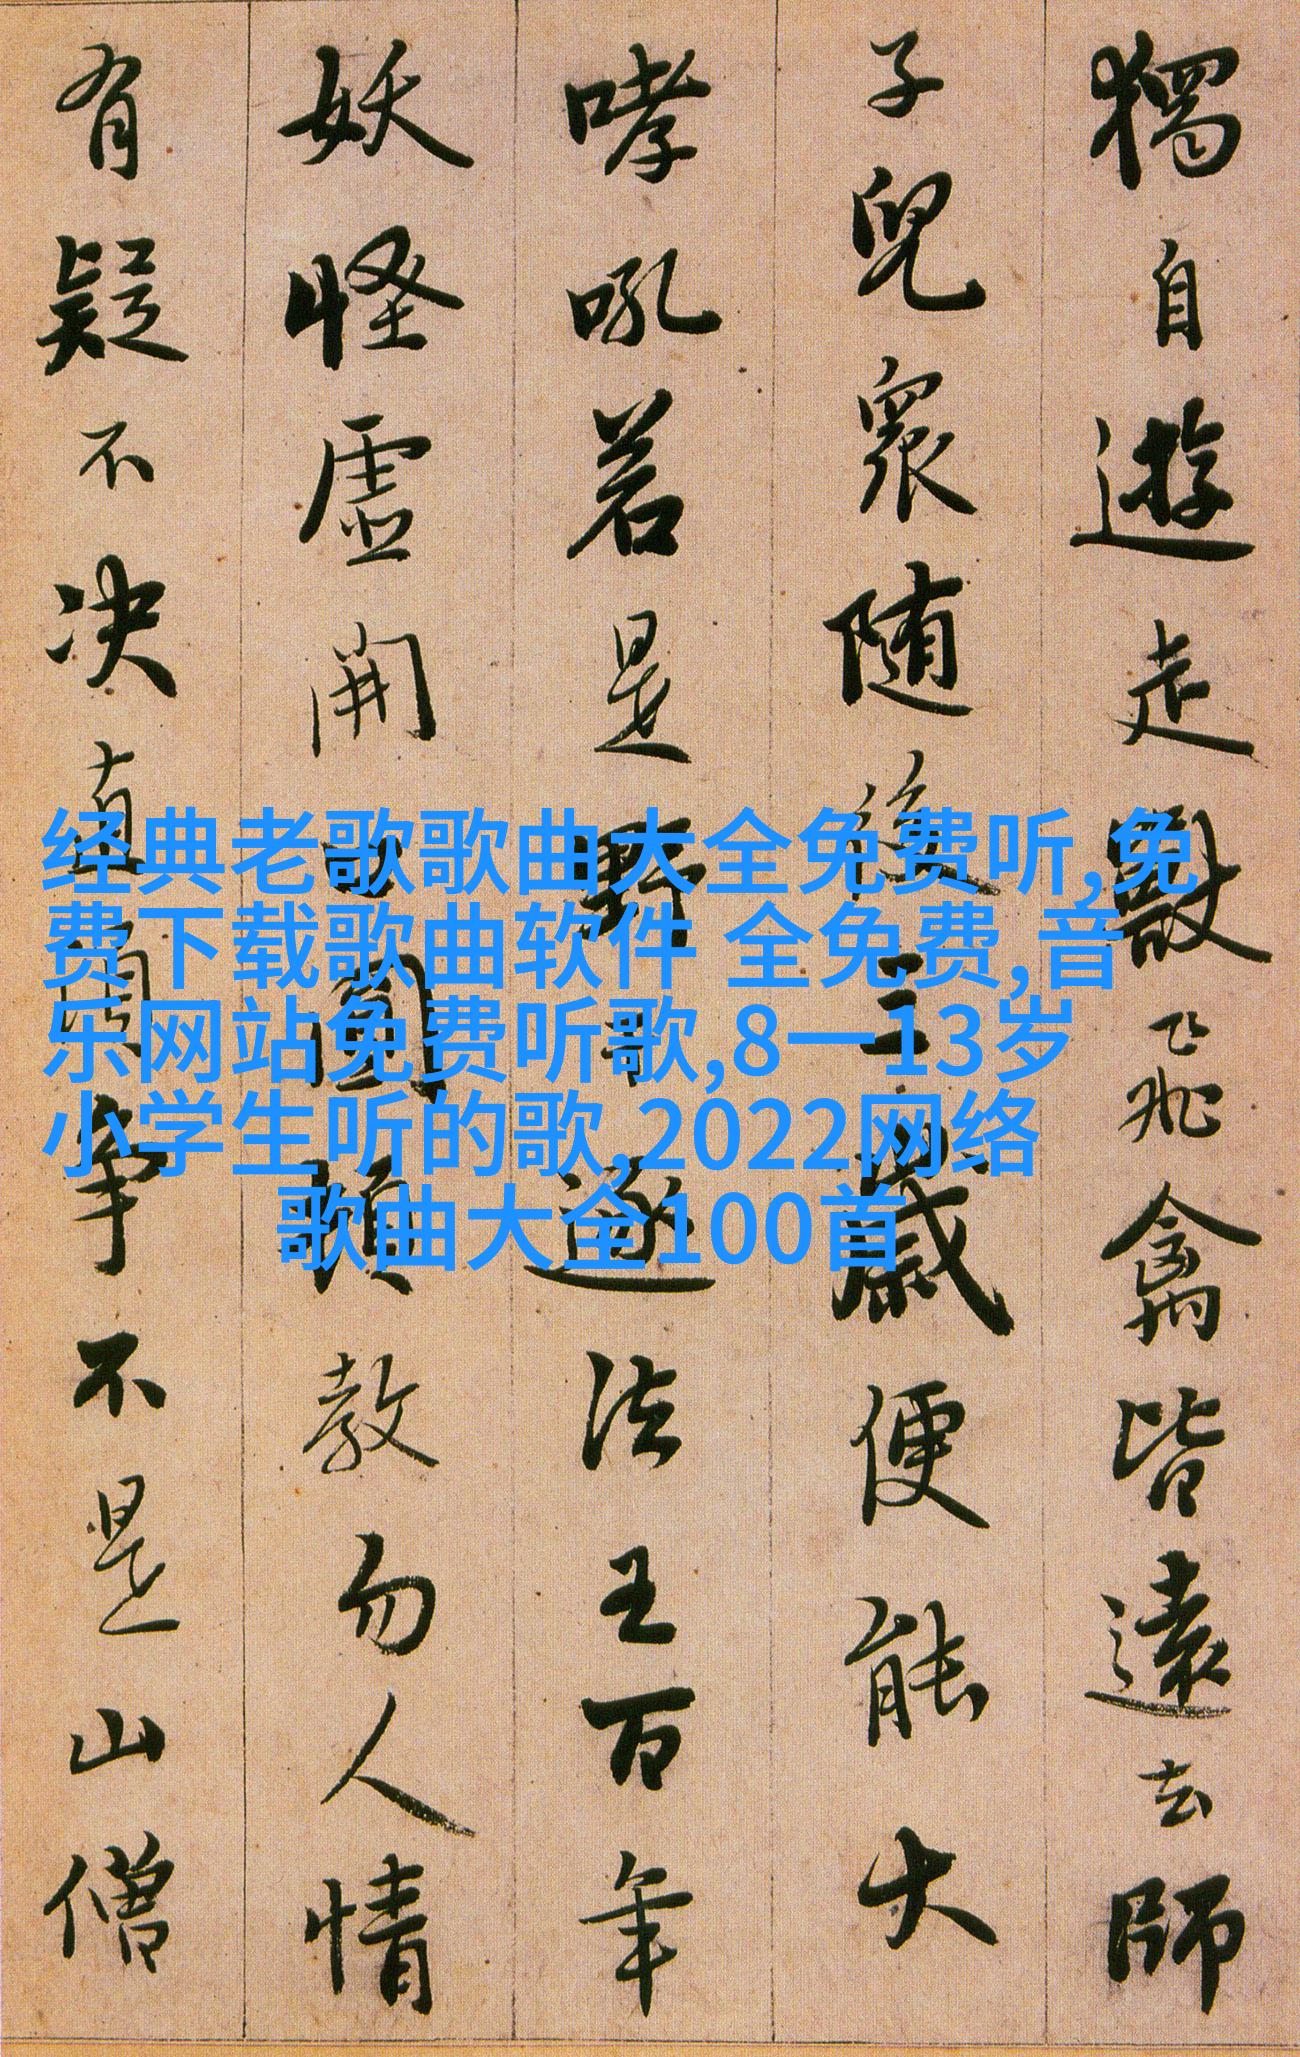 獨自遊走獸飛禽皆遠去師
子兒衆随後三歲便能大
哮吼若是野干逐法王百年
妖怪虛開口圓頓教勿人情
有疑不决直須争不是山僧
经典老歌歌曲大全免费听,免
费下载歌曲软件 全免费,音
乐网站免费听歌,8一13岁
小学生听的歌,2022网络
歌曲大全100首